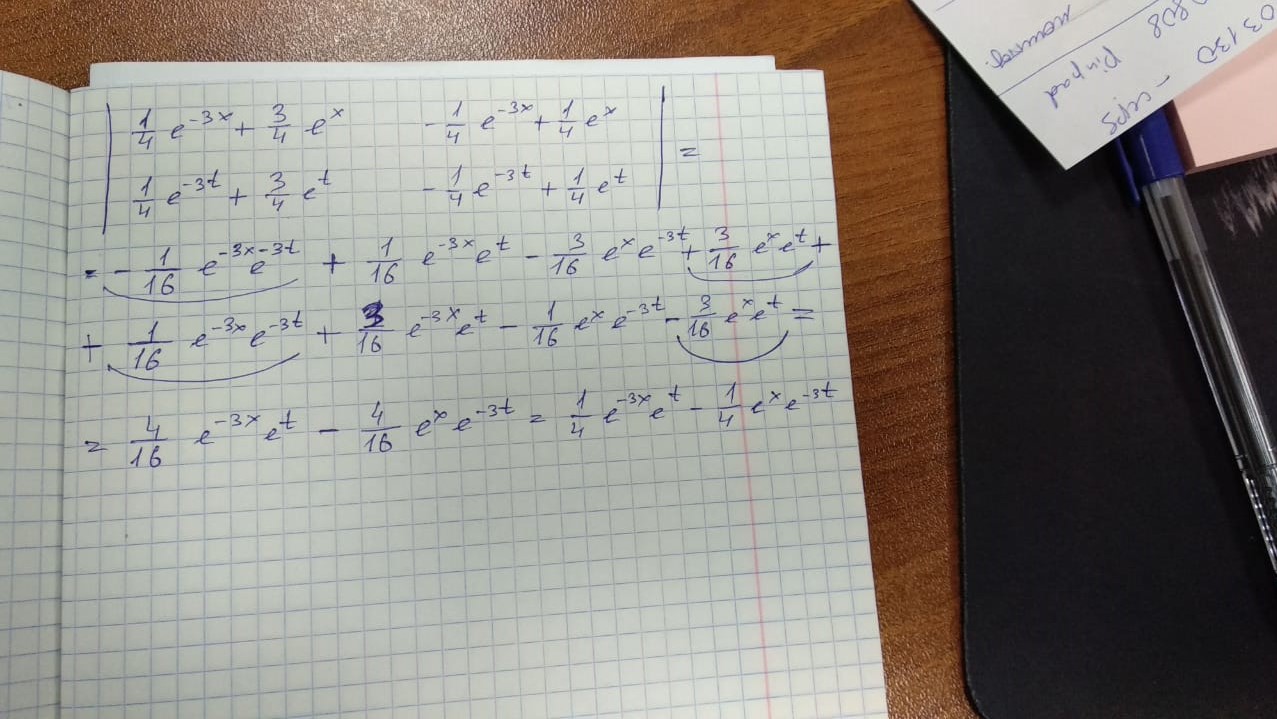 | 1/4 e^{-3x} + 3/4 e^x   - 1/4 e^{-3x} + 1/4 e^x |
| 1/4 e^{-3t} + 3/4 e^t   - 1/4 e^{-3t} + 1/4 e^t | =
= - 1/16 e^{-3x} e^{-3t} + 1/16 e^{-3x} e^t - 3/16 e^x e^{-3t} + 3/16 e^x e^t +
+ 1/16 e^{-3x} e^{-3t} + 3/16 e^{-3x} e^t - 1/16 e^x e^{-3t} - 3/16 e^x e^t =
= 4/16 e^{-3x} e^t - 4/16 e^x e^{-3t} = 1/4 e^{-3x} e^t - 1/4 e^x e^{-3t}
03130 - серв
808 Pinpad